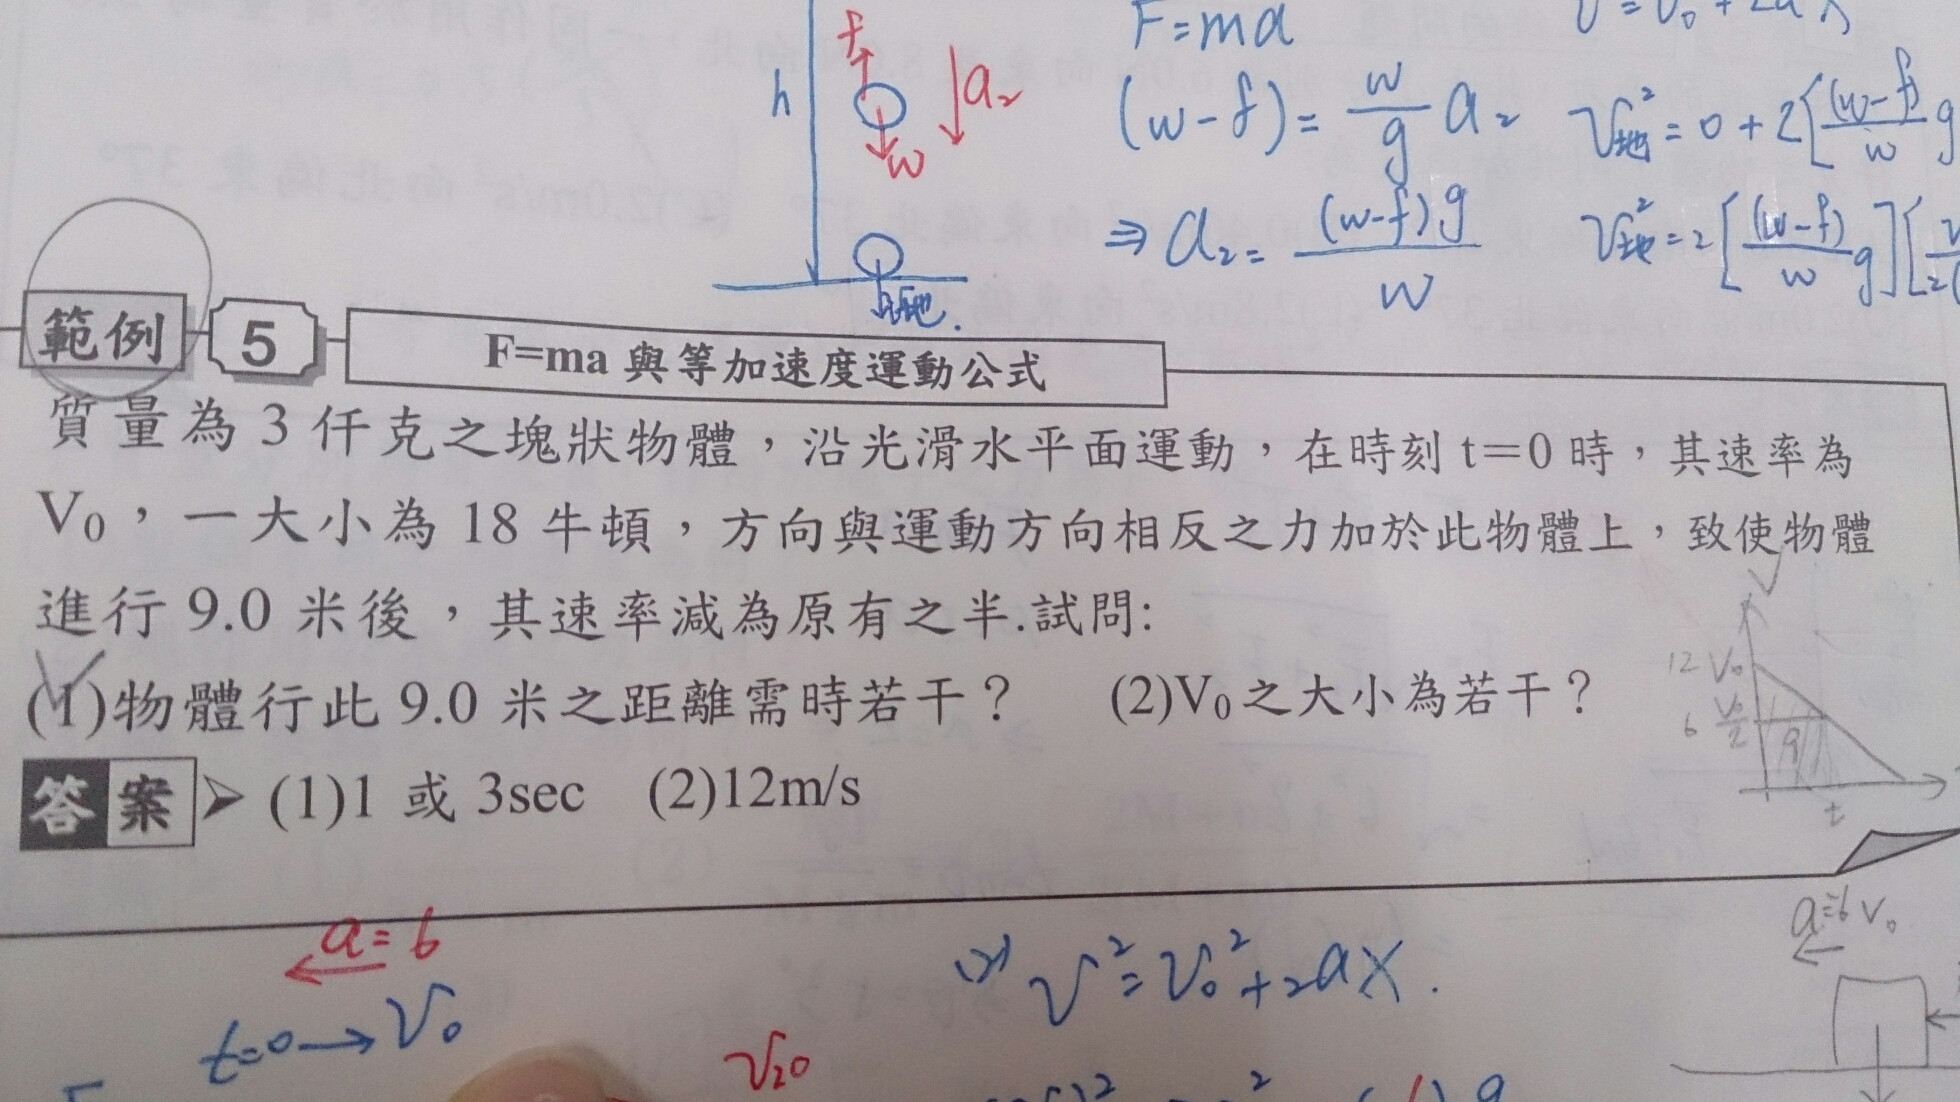 F=ma
h
f
a₂
w
(w-f)=w/g a₂
V地²=0+2[(w-f)/w g
⇒a₂=(w-f)g/w
V地²=2[(w-f)/w g][
V地.
範例 5 F=ma 與等加速度運動公式
質量為 3 仟克之塊狀物體，沿光滑水平面運動，在時刻 t=0 時，其速率為
V₀，一大小為 18 牛頓，方向與運動方向相反之力加於此物體上，致使物體
進行 9.0 米後，其速率減為原有之半.試問:
(1)物體行此 9.0 米之距離需時若干？ (2)V₀之大小為若干？
12 V₀
6 V₀/2
9
t
答案 (1)1 或 3sec (2)12m/s
a=6
t=0→V₀
V²=V₀²+2aX.
a=6 V₀